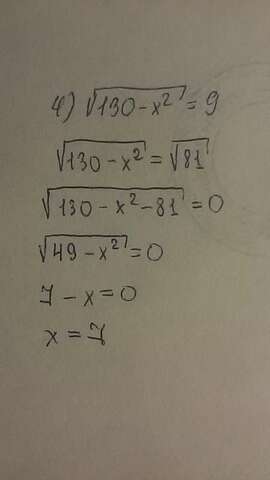 4) √130-x² = 9
√130-x² = √81
√130-x²-81 = 0
√49-x² = 0
7-x=0
x=7